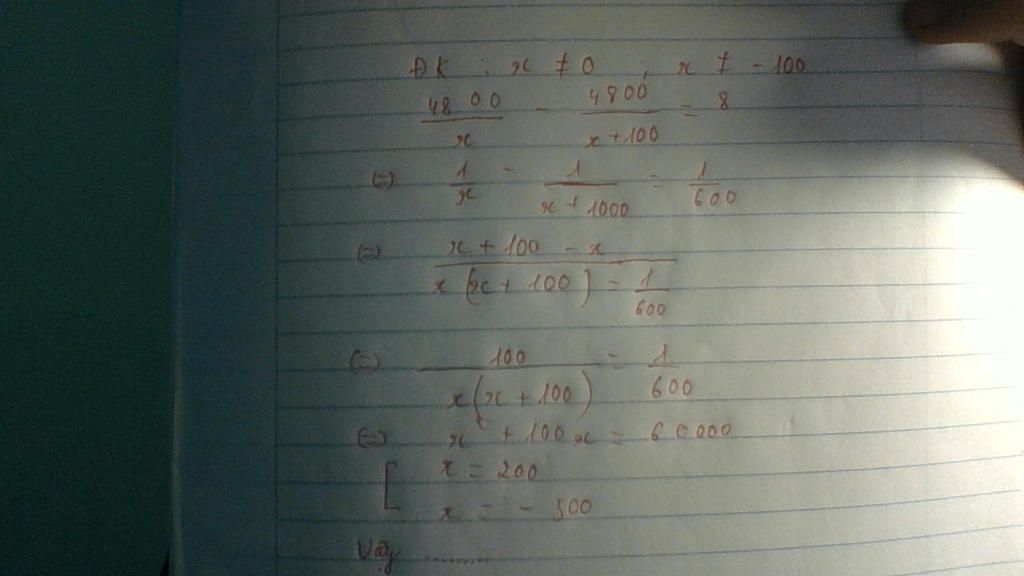 ĐK : x ≠ 0 ; x ≠ - 100
4800/x - 4800/(x+100) = 8
(=) 1/x - 1/(x+1000) = 1/600
(=) (x+100 - x)/(x(x+100)) = 1/600
(=) 100/(x(x+100)) = 1/600
(=) x² + 100x = 60000
[ x = 200
x = - 300
Vậy ........